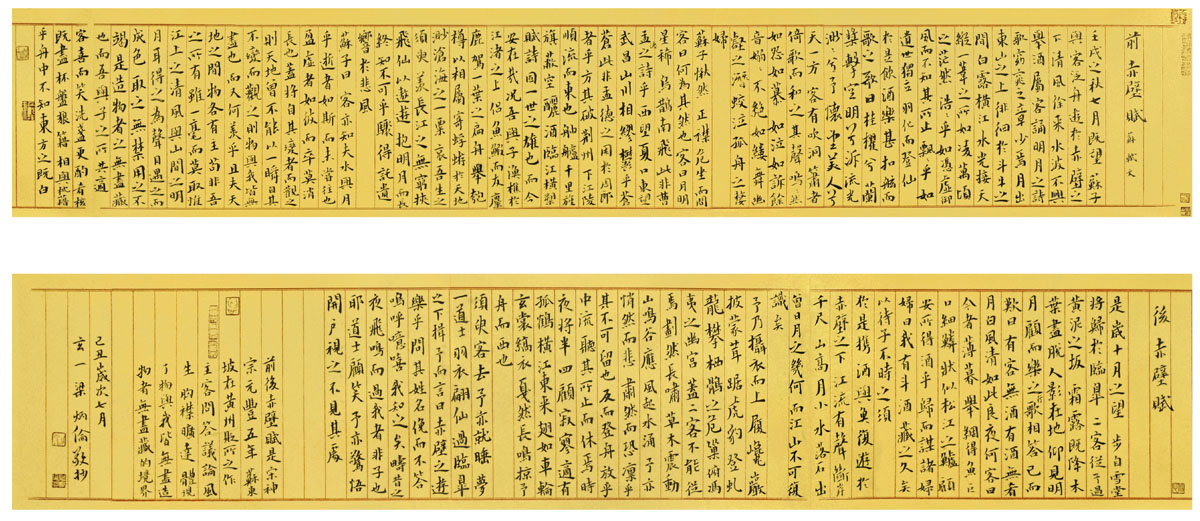 前赤壁賦 蘇軾文
壬戌之秋七月既望蘇子
與客泛舟遊於赤壁之
下清風徐來水波不興
舉酒屬客誦明月之詩
歌窈窕之章少焉月出
東山之上徘徊於斗牛之
間白露橫江水光接天
縱一葦之所如凌萬頃
之茫然浩浩乎如憑虛御
風而不知其所止飄飄乎如
遺世獨立羽化而登仙
於是飲酒樂甚扣舷而
歌之歌曰桂櫂兮蘭
槳擊空明兮泝流光
渺渺兮予懷望美人兮
天一方客有吹洞簫者
倚歌而和之其聲嗚嗚然
如怨如慕如泣如訴餘
音嫋嫋不絕如縷舞幽
壑之潛蛟泣孤舟之嫠
婦
蘇子愀然正襟危坐而問
客曰何為其然也客曰月明
星稀烏鵲南飛此非曹
孟之詩乎西望夏口東望
武昌山川相繆鬱乎蒼
蒼此非孟德之困於周郎
者乎方其破荊州下江陵
順流而東也舳艫千里旌
旗蔽空釃酒臨江橫槊
賦詩固一世之雄也而今
安在哉況吾與子漁樵於
江渚之上侶魚鰕而友麋
鹿駕一葉之扁舟舉匏
樽以相屬寄蜉蝣於天地
渺滄海之一粟哀吾生之
須臾羨長江之無窮挾
飛仙以遨遊抱明月而長
終知不可乎驟得託遺
響於悲風
蘇子曰客亦知夫水與月
乎逝者如斯而未嘗往也
盈虛者如彼而卒莫消
長也蓋將自其變者而觀之
則天地曾不能以一瞬自其
不變而觀之則物與我皆無
盡也而又何羨乎且夫天
地之間物各有主苟非吾
之所有雖一毫而莫取惟
江上之清風與山間之明
月耳得之為聲目遇之而
成色取之無禁用之不
竭是造物者之無盡藏
也而吾與子之所共適
客喜而笑洗盞更酌肴核
既盡杯盤狼籍相與枕藉
乎舟中不知東方之既白
後赤壁賦
是歲十月之望步自雪堂
將歸於臨皋二客從予過
黃泥之坂霜露既降木
葉盡脫人影在地仰見明
月顧而樂之行歌相答已而
歎曰有客無酒有酒無肴
月白風清如此良夜何客曰
今者薄暮舉網得魚巨
口細鱗狀似松江之鱸顧
安所得酒乎歸而謀諸婦
婦曰我有斗酒藏之久矣
以待子不時之須
於是攜酒與魚復遊於
赤壁之下江流有聲斷岸
千尺山高月小水落石出
曾日月之幾何而江山不可復
識矣
予乃攝衣而上履巉巖
披蒙茸踞虎豹登虬
龍攀棲鶻之危巢俯馮
夷之幽宮蓋二客不能從
焉劃然長嘯草木震動
山鳴谷應風起水涌予亦
悄然而悲肅然而恐凜乎
其不可留也反而登舟放乎
中流聽其所止而休焉時
夜將半四顧寂寥適有
孤鶴橫江東來翅如車輪
玄裳縞衣戛然長鳴掠予
舟而西也
須臾客去予亦就睡夢
一道士羽衣翩仙過臨皋
之下揖予而言曰赤壁之遊
樂乎問其姓名俛而不答
嗚呼噫嘻我知之矣疇昔之
夜飛鳴而過我者非子也
耶道士顧笑予亦驚悟
開戶視之不見其處
前後赤壁賦是宋神
宗元豐五年蘇東
坡在黃州貶所之作
主客問答議論風
生胸襟曠達體現
了物與我皆無盡造
物者無盡藏的境界
己丑歲次七月
玄一梁炳倫敬抄